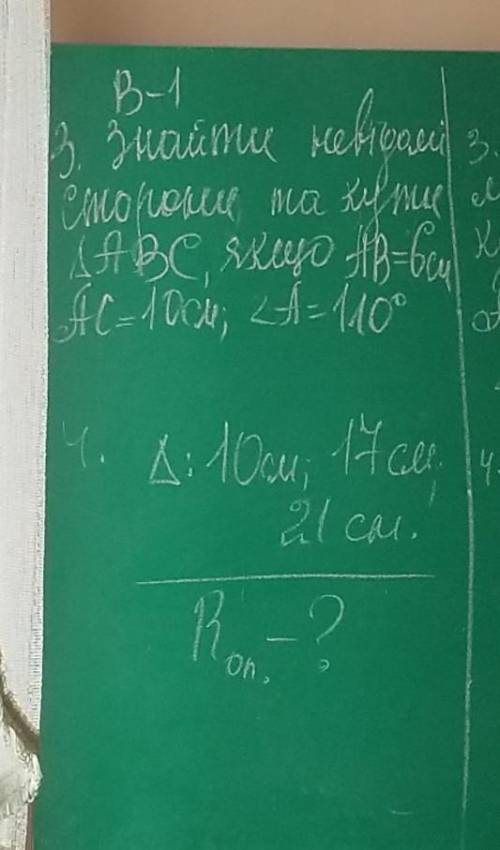 В-1
3. Знайти невідомі
сторони та кути
ΔABC, якщо AB=6см
AC=10см; ∠A=110°
4. Δ: 10см; 17см;
21 см.
Rоп. - ?
3.
4